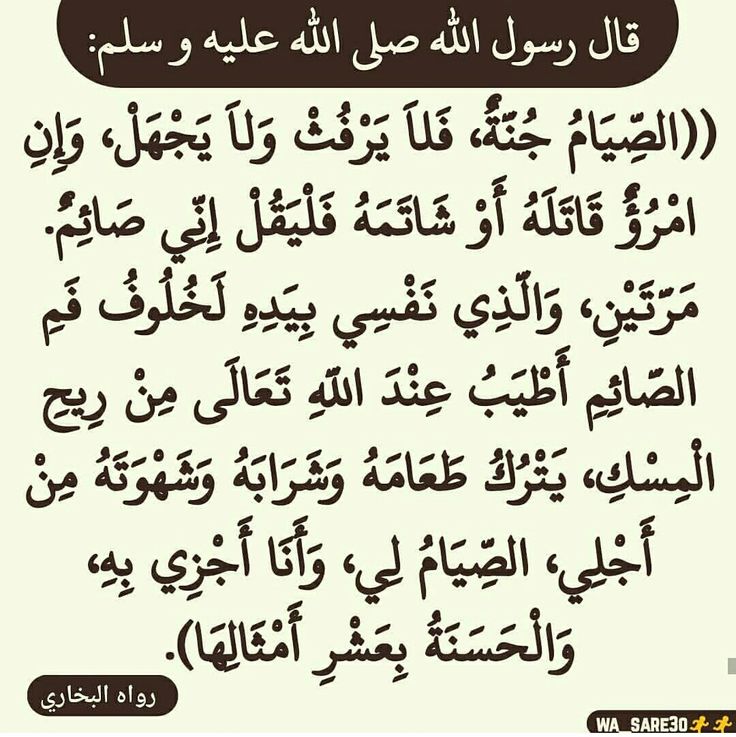 قال رسول الله صلى الله عليه و سلم:
((الصِّيَامُ جُنَّةٌ، فَلاَ يَرْفُثْ وَلاَ يَجْهَلْ، وَإِنِ
امْرُؤٌ قَاتَلَهُ أَوْ شَاتَمَهُ فَلْيَقُلْ إِنِّي صَائِمٌ.
مَرَّتَيْنِ، وَالَّذِي نَفْسِي بِيَدِهِ لَخُلُوفُ فَمِ
الصَّائِمِ أَطْيَبُ عِنْدَ اللَّهِ تَعَالَى مِنْ رِيحِ
الْمِسْكِ، يَتْرُكُ طَعَامَهُ وَشَرَابَهُ وَشَهْوَتَهُ مِنْ
أَجْلِي، الصِّيَامُ لِي، وَأَنَا أَجْزِي بِهِ،
وَالْحَسَنَةُ بِعَشْرِ أَمْثَالِهَا).
رواه البخاري
WA_SARE30